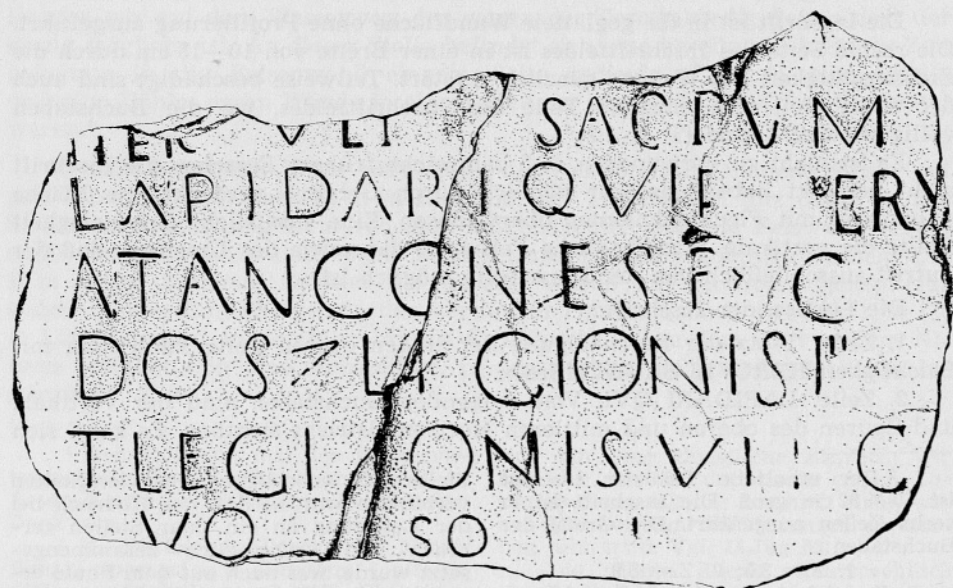 HER VLI SACRVM
LAPIDARI QVI ERV
ATANCONES F C
DOS LEGIONIS
T LEGIONIS VIII C
VO SO